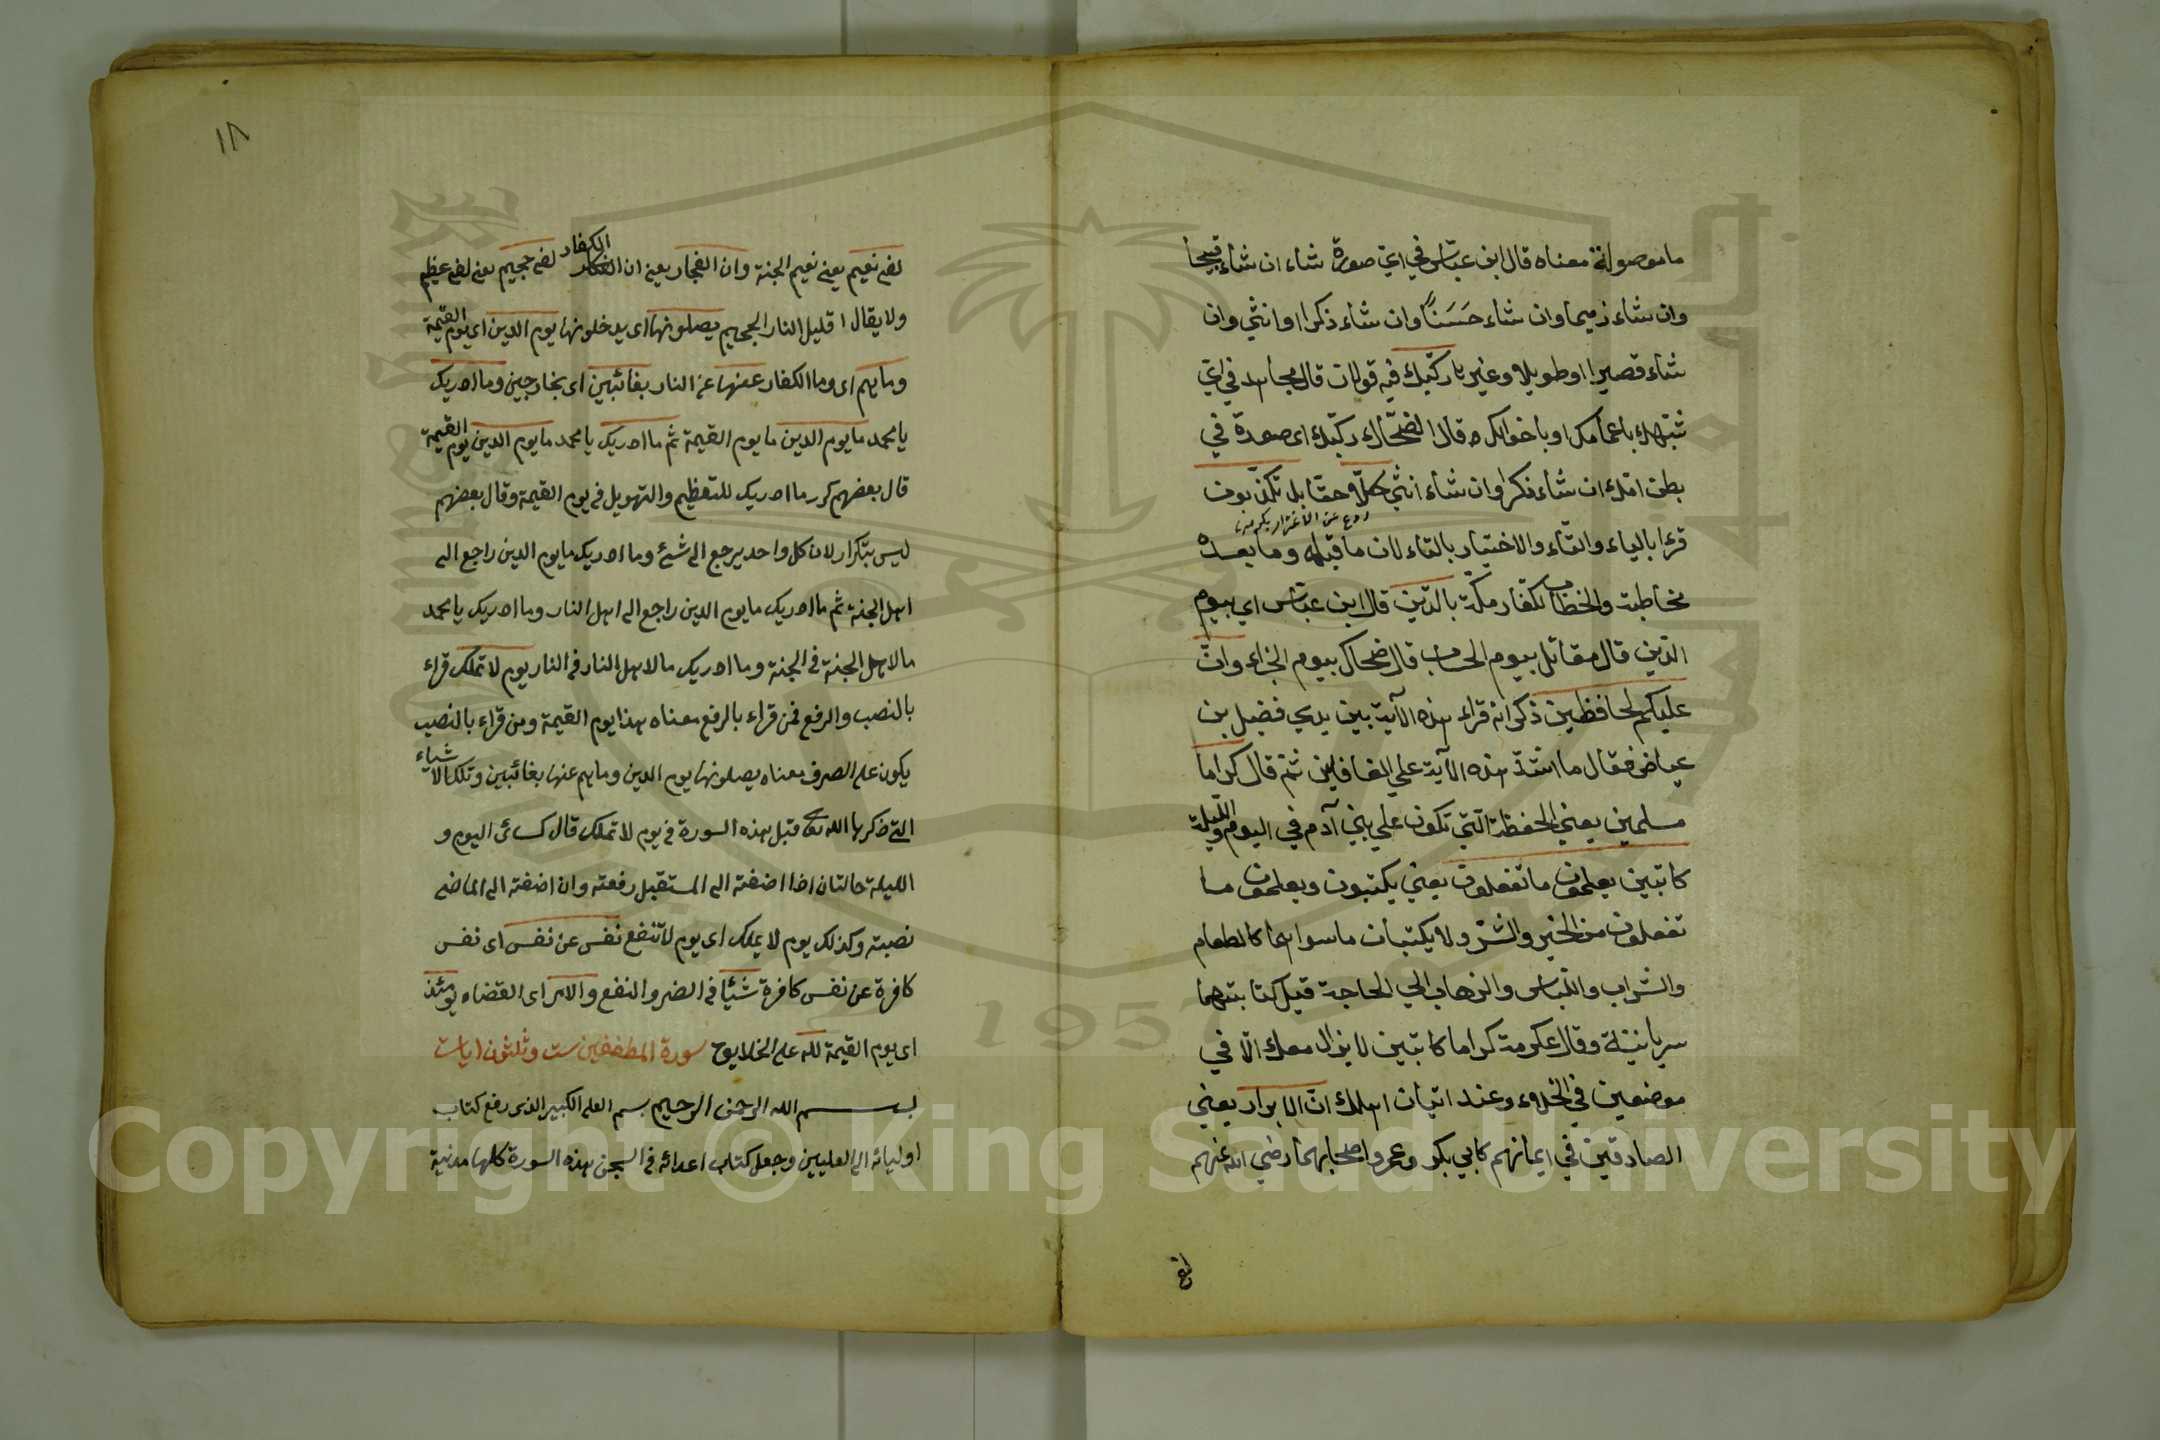 ما موصولة معناه قال ابن عباس في اي صورة شاء ان شاء قبيحا
وان شاء ذميما وان شاء حَسَنًا وان شاء ذكرا او انثي وان
شاء قصيرا او طويلا وغير يا ركّبك فيه قولان قال مجاهد في اي
شبهك باعمامك او باخوالك قال الضحّاك ركّبك اي صورة في
بطن امك ان شاء ذكرا وان شاء انثي كلّا حقا بل تكذّبون
ردع عن الاغترار بكرمه
قرءا بالياء والتاء والاختيار بالتاء لان ما قبله وما بعده
مخاطبة والخطاب لكفار مكّة بالدّين قال ابن عباس اي بيوم
الدّين قال مقاتل بيوم الحساب قال ضحاك بيوم الجزاء وانّ
عليكم لحافظين ذكر انه قراء هذه الآية بين يدي فضيل بن
عياض فقال ما اشدّ هذه الآية علي الغافلين ثم قال كراما
مسلمين يعني الحفظة الّتي تكون علي بني آدم في اليوم والليلة
كاتبين يعلمون ما تفعلون يعني يكتبون ويعلمون ما
تفعلون من الخير والشرّ ولا يكتبان ما سواهما كالطعام
والشراب واللباس والذهاب الي الحاجة قيل كتابتهما
سريانيّة وقال عكرمة كراما كاتبين لا يزال معك الّا في
موضعين في الخلاء وعند اتيان اهلك انّ الابرار يعني
الصادقين في ايمانهم كابي بكر وعمر واصحابهما رضي الله عنهم
لفي
١٨
لفي نعيم يعني نعيم الجنة وان الفجار يعني ان الكفار لفي جحيم يعني لفي عظيم
ولا يقال اقليل النار الجحيم يصلونها اى يدخلونها يوم الدين اى يوم القيمة
وما هم اى وما الكفار عنها عن النار بغائبين اى بخارجين وما ادريك
يا محمد ما يوم الدين ما يوم القيمة ثم ما ادريك يا محمد ما يوم الدين يوم القيمة
قال بعضهم كرر ما ادريك للتعظيم والتهويل فى يوم القيمة وقال بعضهم
ليس بتكرار لان كل واحد يرجع الى شئ وما ادريك ما يوم الدين راجع الى
اهل الجنة ثم ما ادريك ما يوم الدين راجع الى اهل النار وما ادريك يا محمد
ما لاهل الجنة فى الجنة وما ادريك ما لاهل النار فى النار يوم لا تملك قراء
بالنصب والرفع فمن قراء بالرفع معناه هذا يوم القيمة ومن قراء بالنصب
يكون على الصرف معناه يصلونها يوم الدين وما هم عنها بغائبين وتلك الاشياء
التى ذكرها الله قبل هذه السورة فى يوم لا تملك قال كسائى اليوم و
الليلة حالتان اذا اضفته الى المستقبل رفعته وان اضفته الى الماضى
نصبته وكذلك يوم لا يملك اى يوم لا تنفع نفس عن نفس اى نفس
كافرة عن نفس كافرة شيئا فى الضر والنفع والامر اى القضاء يومئذ
اى يوم القيمة لله على الخلايوح سورة المطففين ست وثلثون ايات
بسم الله الرحمن الرحيم بسم العلى الكبير الذى رفع كتاب
اوليائه الى العليين وجعل كتاب اعدائه فى السجن هذه السورة كلها مدنية
1957
Copyright © King Saud University